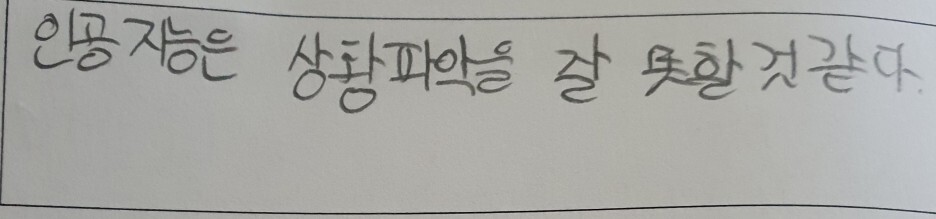 인공지능은 상황파악을 잘 못할것같다.